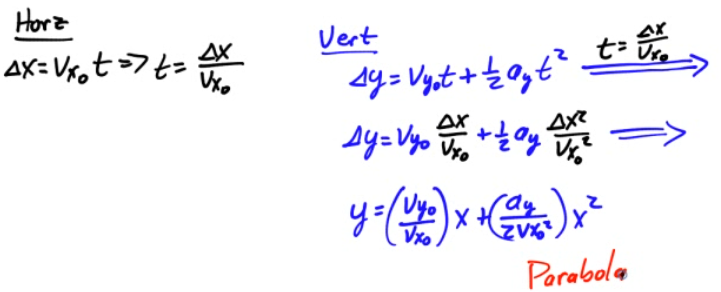 Horz
Δx = Vx₀ t => t = Δx/Vx₀
Vert
Δy = Vy₀ t + 1/2 ay t² t = Δx/Vx₀ ⟹
Δy = Vy₀ Δx/Vx₀ + 1/2 ay Δx²/Vx₀² ⟹
y = (Vy₀/Vx₀) x + (ay/2Vx₀²) x²
Parabola